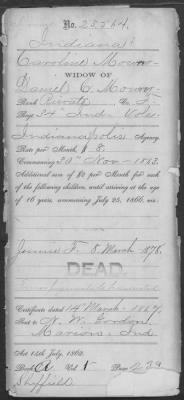 No. 25564.
Indiana
Caroline Mowry
WIDOW OF
Daniel C. Mowry
Rank Private Co. I.
Reg. 34" Ind. Vols
Indianapolis Agency.
Rate per Month, $ 8.
Commencing 30" Nov 1863.
Additional sum of $2 per Month for each
of the following children, until arriving at the age
of 16 years, commencing July 25, 1866, viz:
Jennie F. 8. March 1878.
DEAD.
Certificate dated 14 March 1864
Sent to N. W. Gordon,
Marion, Ind
Act 14th July, 1862.
Book A Vol 1 Page 239
Sheffield